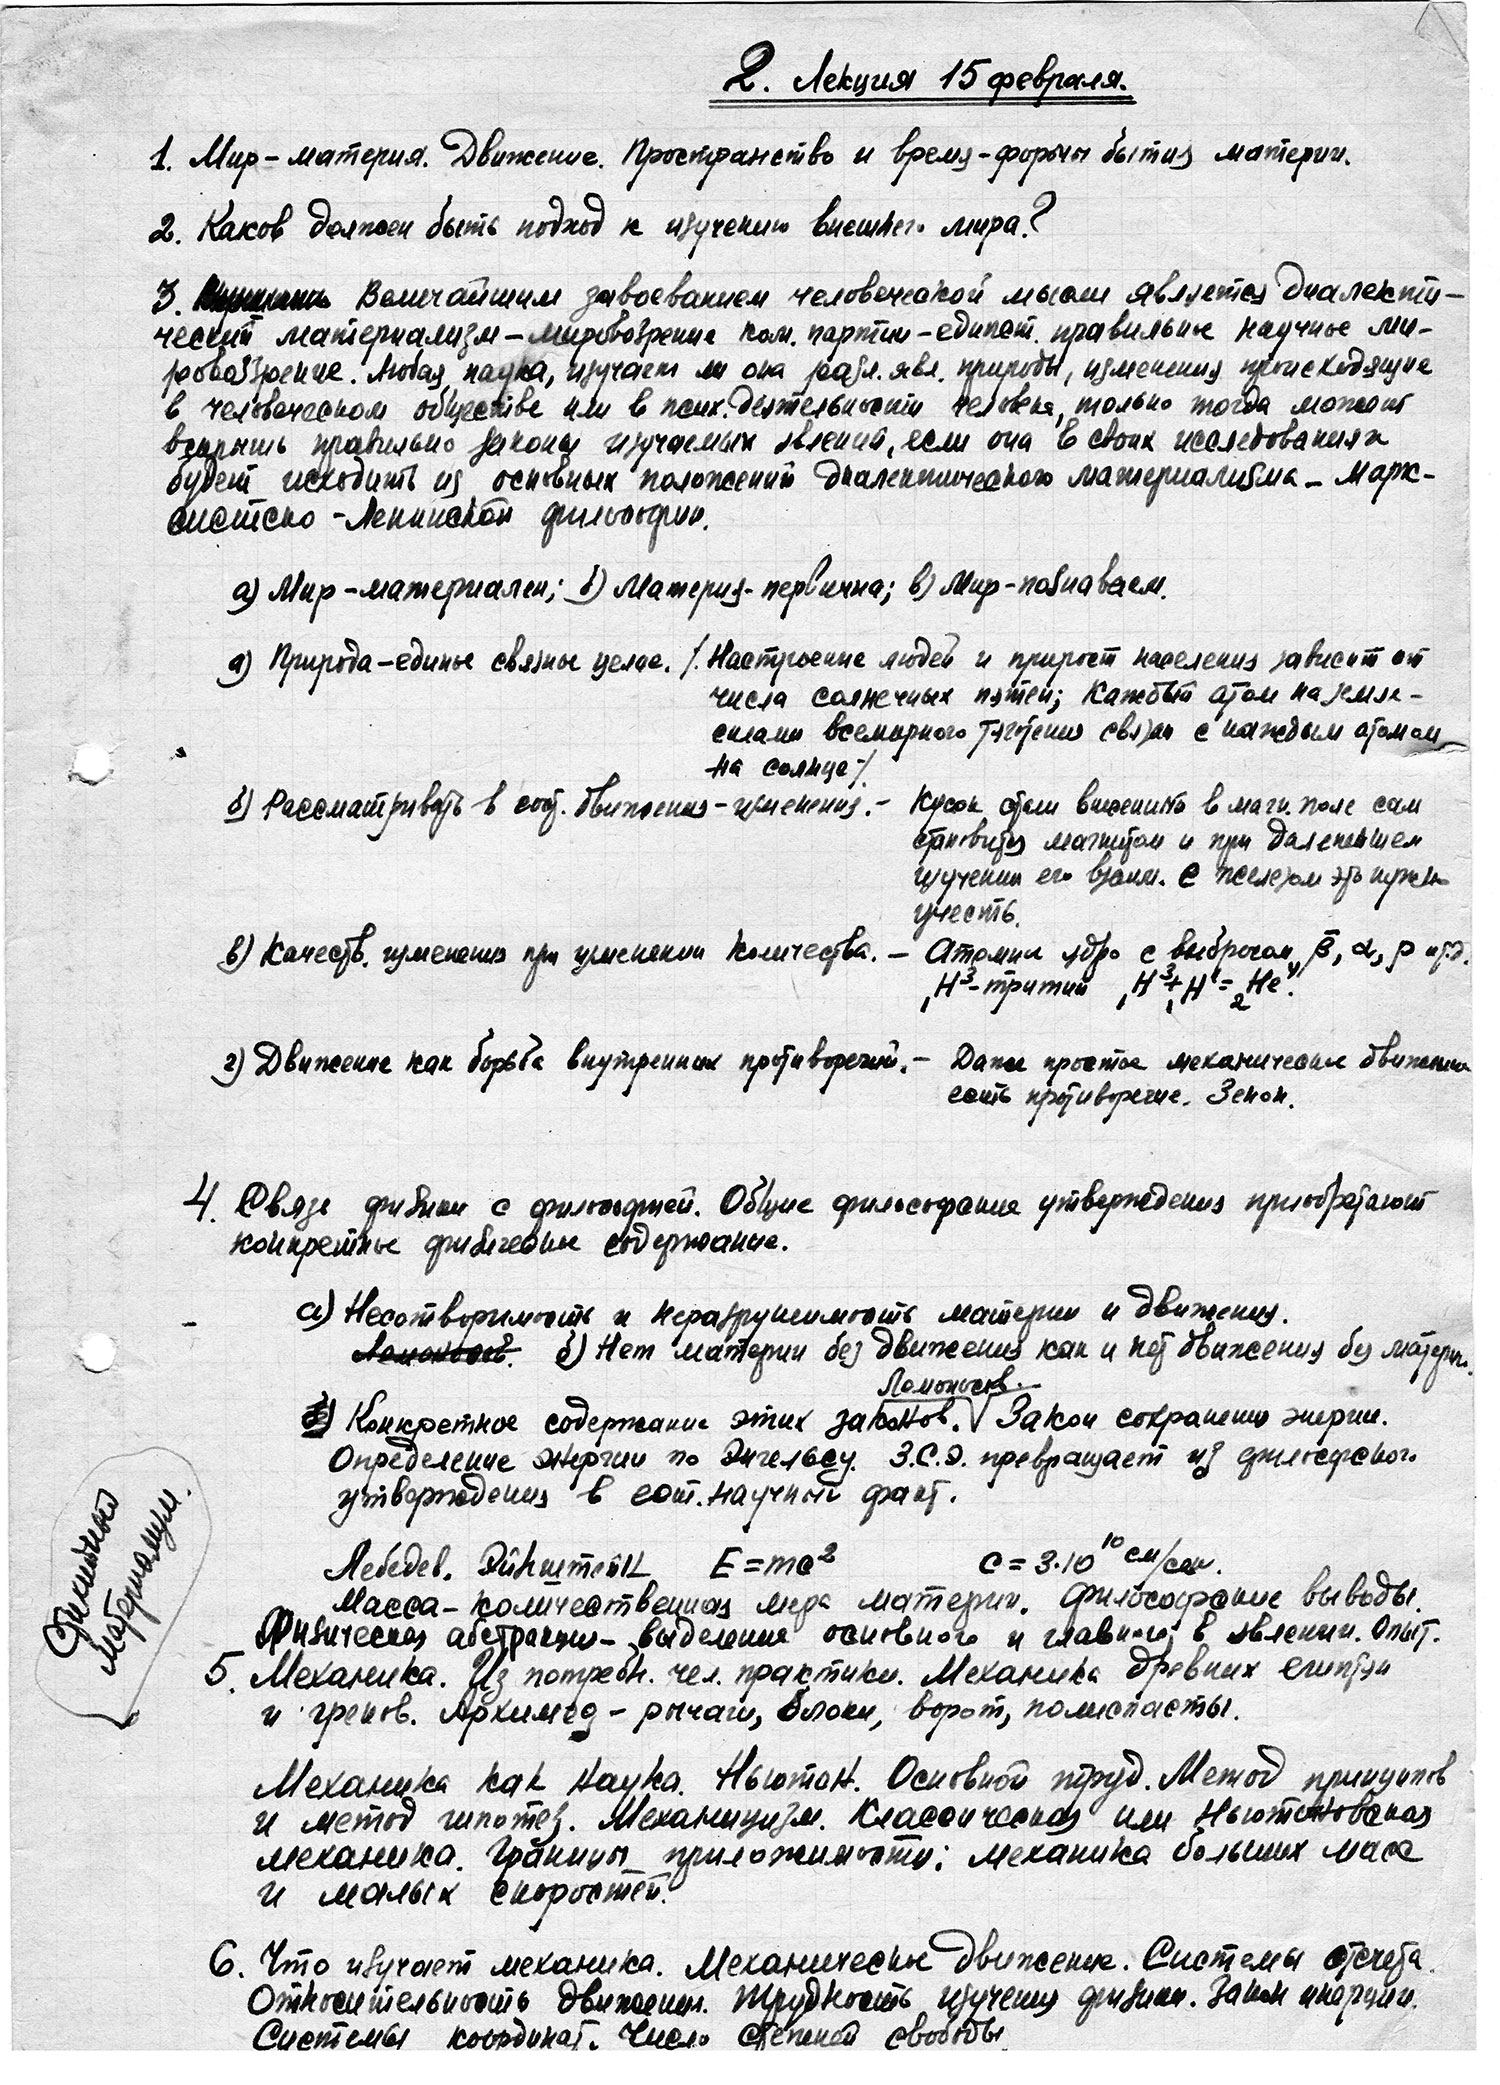 2. Лекция 15 февраля.
1. Мир – материя. Движение. Пространство и время – формы бытия материи.
2. Каков должен быть подход к изучению внешнего мира?
3. Величайшим завоеванием человеческой мысли является диалекти-
ческий материализм – мировозрение ком. партии – единст. правильное научное ми-
ровоззрение. Любая наука, изучает ли она разл. явл. природы, изменения происходящие
в человеческом обществе или в псих. деятельности человека, только тогда может
вскрыть правильно законы изучаемых явлений, если она в своих исследованиях
будет исходить из основных положений диалектического материализма – марк-
систско - Ленинской философии.
а) Мир – материален; б) Материя - первична; в) Мир - познаваем.
а) Природа – единое связное целое. /. Настроение людей и прирост населения зависит от
числа солнечных пятен; Каждый атом на земле -
силами всемирного тяготения связан с каждым атомом
на солнце ./
б) Рассматривать в сост. движения – изменения. – Кусок стали внесенный в магн. поле сам
становится магнитом и при дальнейшем
изучении его взаим. с железом это нужно
учесть.
в) Качеств. изменения при изменении количества. – Атомное ядро с выбросом β, α, p и т.д.
₁H³ - тритий ₁H³ + ₁H¹ = ₂He⁴.
г) Движение как борьба внутренних противоречий. – Даже простое механическое движение
есть противоречие. Зенон.
4. Связь физики с философией. Общие философские утверждения приобретают
конкретное физическое содержание.
а) Несотворимость и неразрушимость материи и движения.
Ломоносов. б) Нет материи без движения как и нет движения без материи.
Ломоносов.
Конкретное содержание этих законов. √ Закон сохранения энергии.
Определение энергии по Энгельсу. З.С.Э. превращает из философского
утверждения в ест. научный факт.
Лебедев. Эйнштейн E = mc² C = 3·10¹⁰ см/сек.
Масса – количественная мера материи. Философские выводы.
Физическая абстракция – выделение основного и главного в явлении. Опыт.
5. Механика. Из потребн. чел. практики. Механика древних египтян
и греков. Архимед – рычаги, блоки, ворот, полиспасты.
Механика как наука. Ньютон. Основной труд. Метод принципов
и метод гипотез. Механицизм. Классическая или Ньютоновская
механика. Границы приложимости: механика больших масс
и малых скоростей.
6. Что изучает механика. Механическое движение. Системы отсчета.
Относительность движения. Трудность изучения физики. Закон инерции.
Системы координат. Число степеней свободы
материализм.